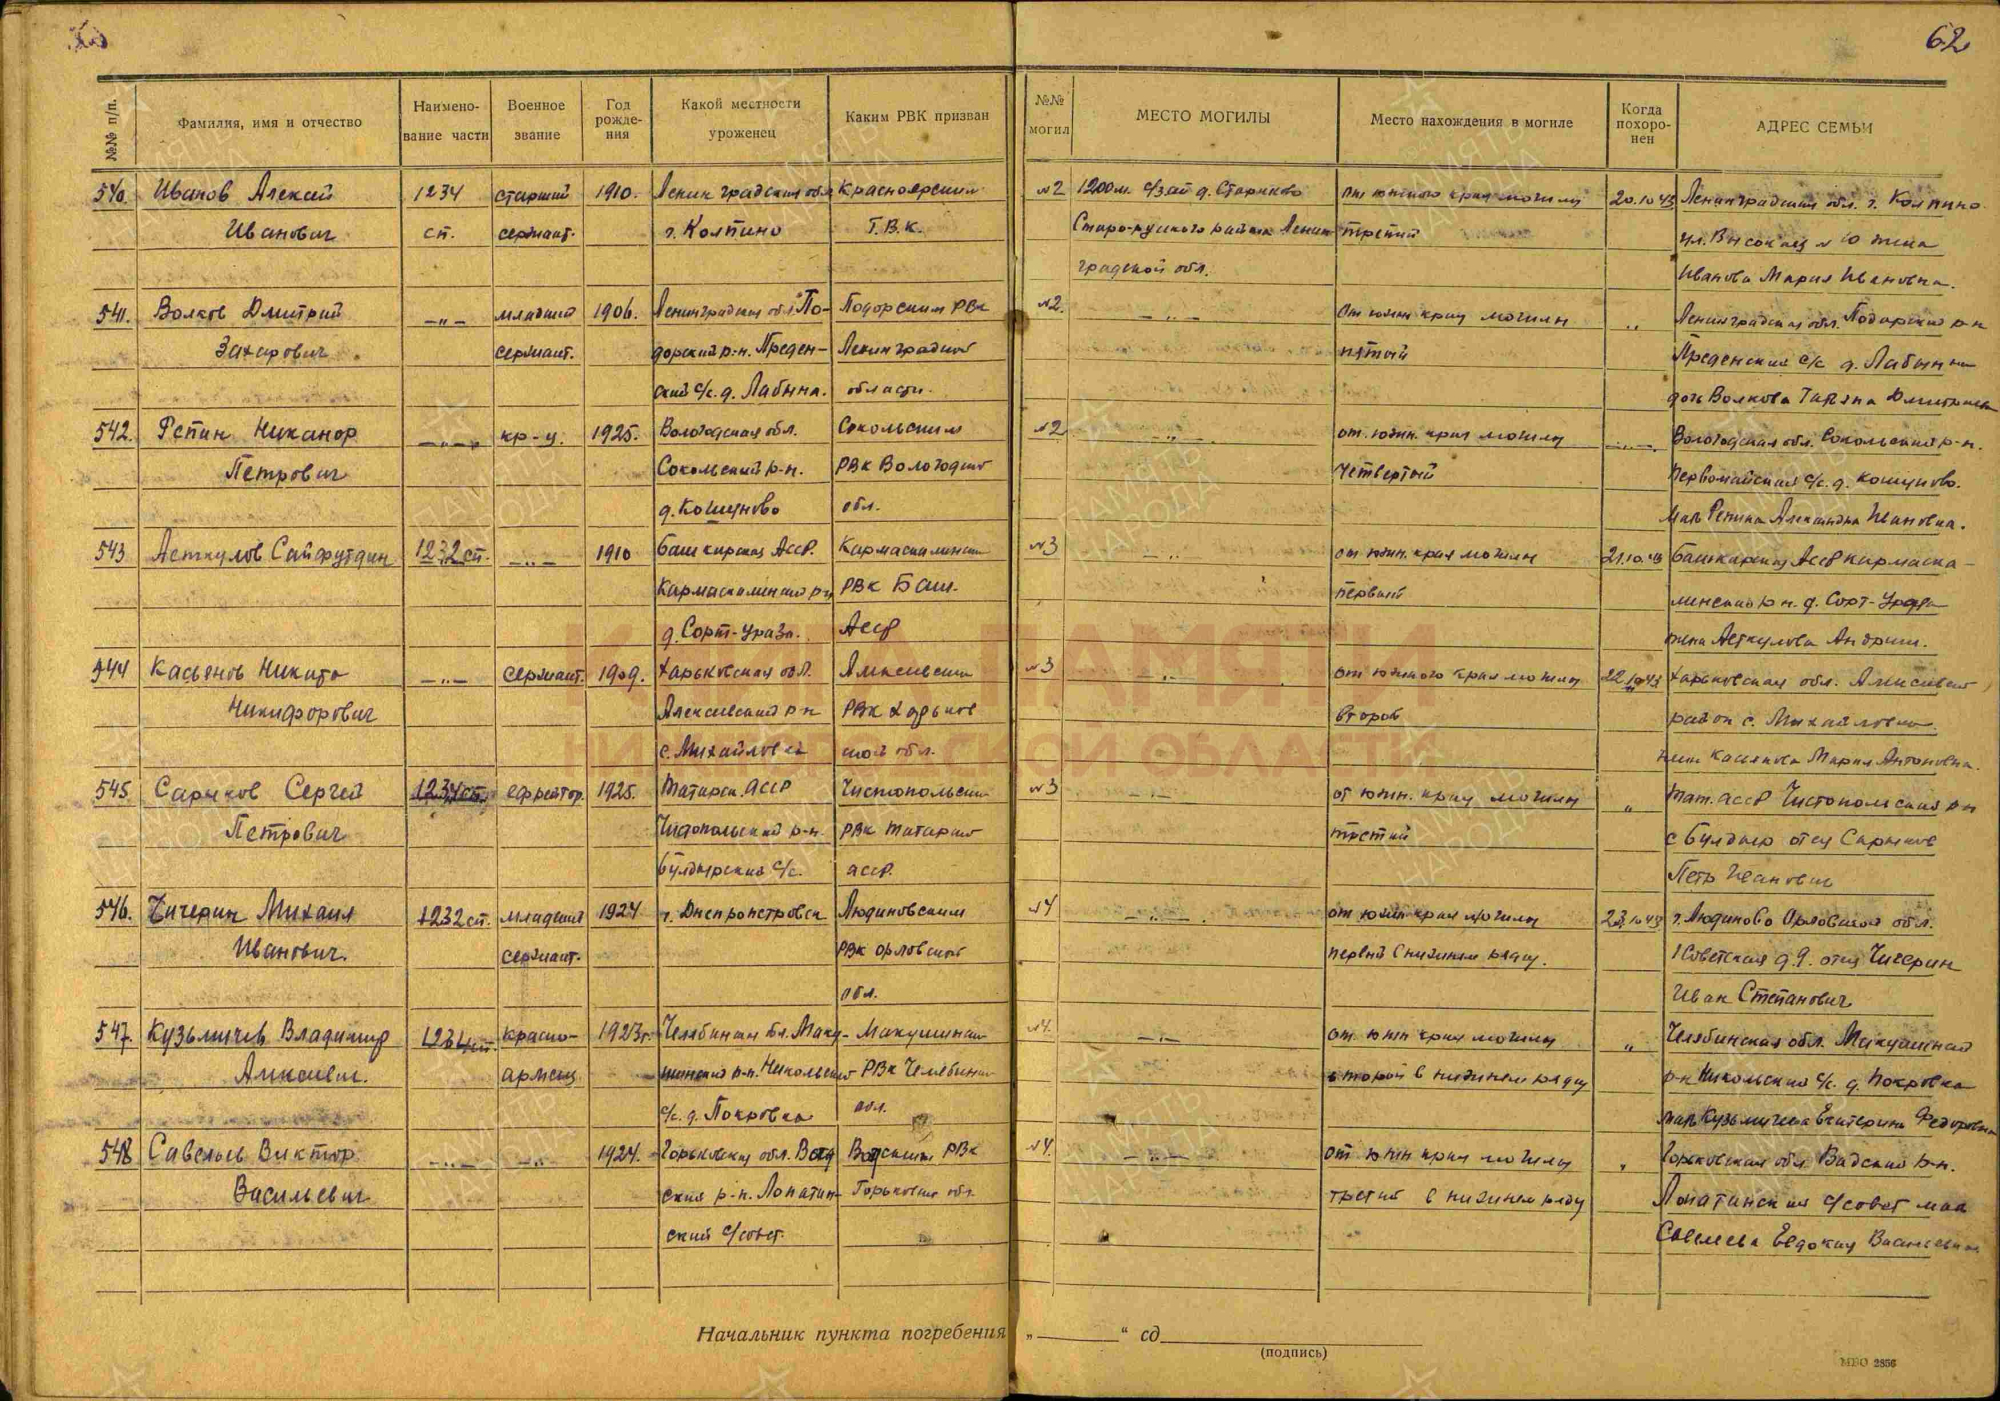 62
№№ п/п.
Фамилия, имя и отчество
Наимено-
вание части
Военное
звание
Год
рожде-
ния
Какой местности
уроженец
Каким РВК призван
№№
могил
МЕСТО МОГИЛЫ
Место нахождения в могиле
Когда
похоро-
нен
АДРЕС СЕМЬИ
540. Иванов Алексей 1234 старший 1910. Ленинградская обл Красноярским №2 1200м. с/зап д. Стариково от южного края могилы 20.10.43 Ленинградская обл. г. Колпино
Иванович сп. сержант. г. Колпино Г.В.К. Старо-русского района Ленин третий ул. № 10 жена
градской обл. Иванова Мария Ивановна.
541. Волков Дмитрий —„— младший 1906. Ленинградская обл По- Подорским РВК №2. —„— от южн края могилы „ Ленинградская обл. Подорский р-н
Захарович сержант. дорский р-н. Преден- Ленинградской пятый Преденский с/с д. Лабынка
ский с/с. д. Лабына. области. дочь Волкова Дмитриевна
542. Репин Никанор —„— кр-ц. 1925. Вологодская обл. Сокольским №2 —„— от южн. края могилы —„— Вологодская обл. Сокольский р-н.
Петрович Сокольский р-н. РВК Вологодской четвертый Первомайская с/с. д. Кошуново.
д. Кошуново обл. мать Репина Александра Ивановна.
543 Асткулов Сайфутдин 1232 сп. —„— 1910 Башкирская АССР. Кармаскалинским №3 —„— от южн. края могилы 21.10.43 Башкирская АССР Кармаска-
Кармаскалинский р-н РВК Баш. первый линский р-н. д. Сорт-Ураза
д. Сорт-Ураза. АССР жена Асткулова
544 Касьянов Никита —„— сержант. 1909. Харьковская обл. Алексеевским №3 —„— от южного края могилы 22.10.43 Харьковская обл. Алексеевский
Никифорович Алексеевский р-н РВК Харьков второй район с. Михайловка.
с. Михайловка ской обл. Касьянова Мария Антоновна.
545 Сарычов Сергей 1234 сп. ефрейтор. 1925. Татарск. АССР Чистопольским №3 —„— от южн. края могилы „ Тат. АССР Чистопольский р-н
Петрович Чистопольский р-н. РВК Татарской третий с Булдыр отец Сарычов
Булдырский с/с. АССР. Петр Иванович
546. Чичерин Михаил 1232 сп. младший 1924 г. Днепропетровск Людиновским №4 —„— от южн края могилы 23.10.43 г. Людиново Орловской обл.
Иванович. сержант. РВК Орловской первый в нижнем ряду. 1 Советская д. 9. отец Чичерин
обл. Иван Степанович
547. Кузьмичев Владимир 1234 сп. красно- 1923г. Челябинская обл. Маку- Макушинским №4. —„— от южн края могилы „ Челябинская обл. Макушинский
Алексеев. армеец шинский р-н. Никольский РВК Челябинской второй в нижнем ряду р-н Никольский с/с. д. Покровка
с/с. д. Покровка обл. мать Кузьмичева Екатерина Федоровна
548 Савельев Виктор —„— —„— 1924. Горьковская обл. Вад Вадским РВК №4. —„— от южн края могилы „ Горьковская обл. Вадский р-н.
Васильевич ский р-н. Лопатин- Горьковской обл. третий в нижнем ряду Лопатинский с/совет мать
ский с/совет. Савельева Евдокия Васильевна
Начальник пункта погребения „ “ сд
(подпись)
МВО 2856
КНИГА ПАМЯТИ
НИЖЕГОРОДСКОЙ ОБЛАСТИ
ПАМЯТЬ
НАРОДА